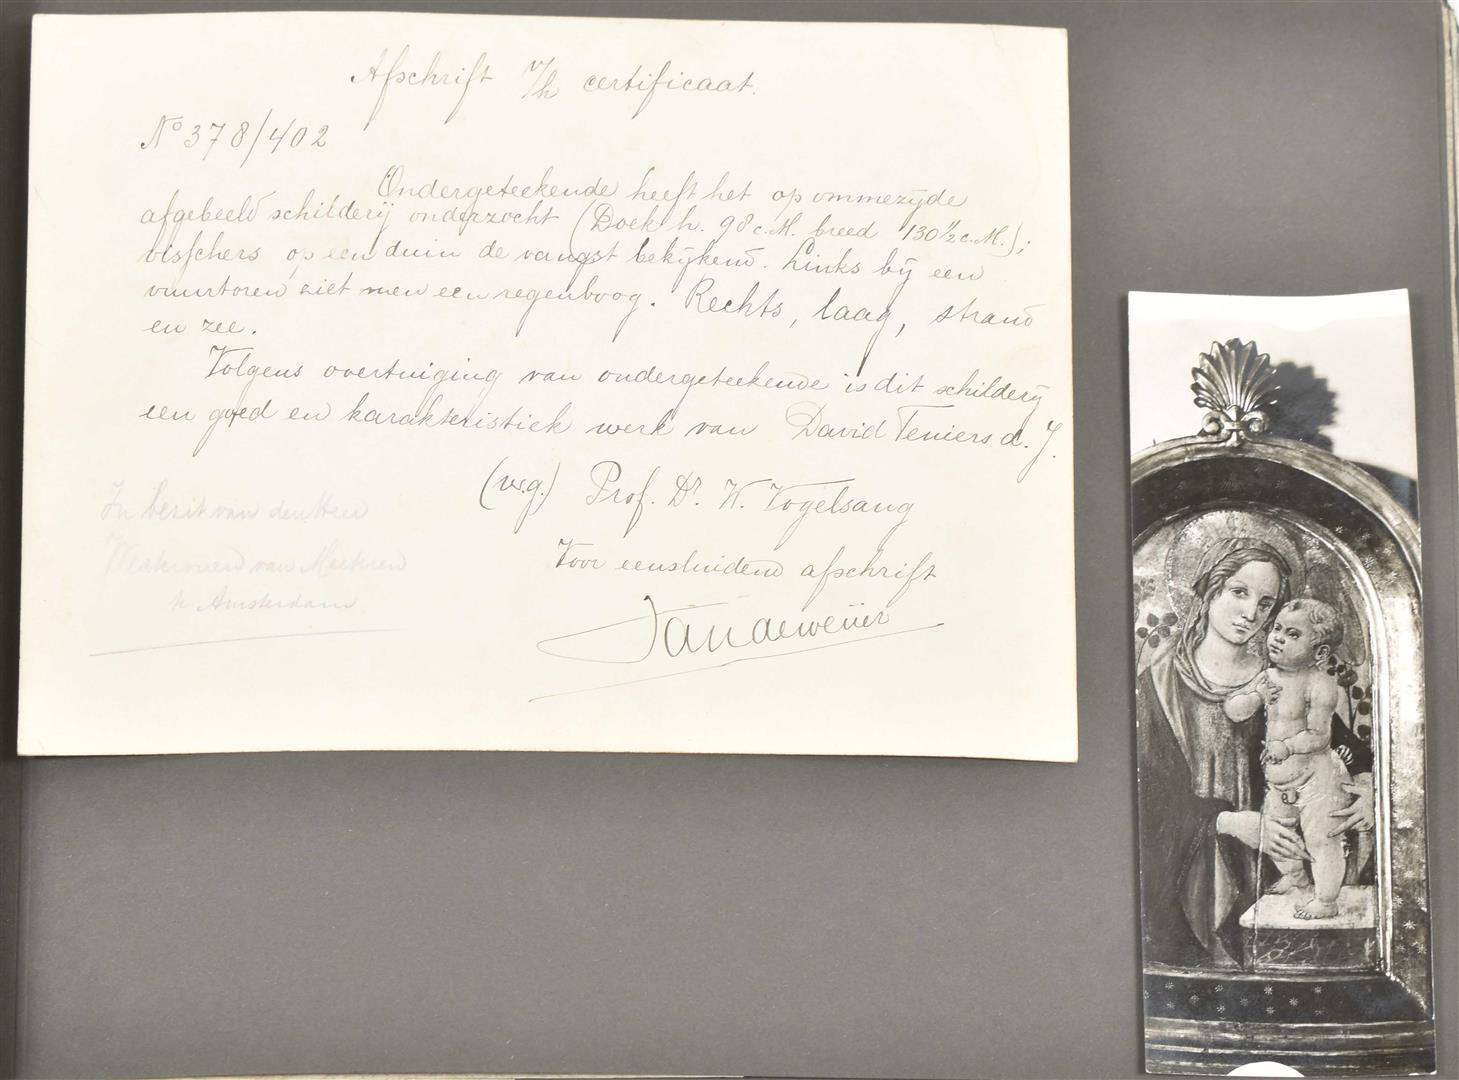 Afschrift v/h certificaat.
No 378/402
Ondergeteekende heeft het op ommezijde
afgebeeld schilderij onderzocht (Doek h. 98 c.M. breed 130½ c.M.);
visschers op een duin de vangst bekijkend. Links bij een
vuurtoren ziet men een regenboog. Rechts, laag, strand
en zee.
Volgens overtuiging van ondergeteekende is dit schilderij
een goed en karakteristiek werk van David Teniers d. J.
(w.g.) Prof. Dr. W. Vogelsang
Voor eensluidend afschrift
In bezit van den Heer
van
te Amsterdam